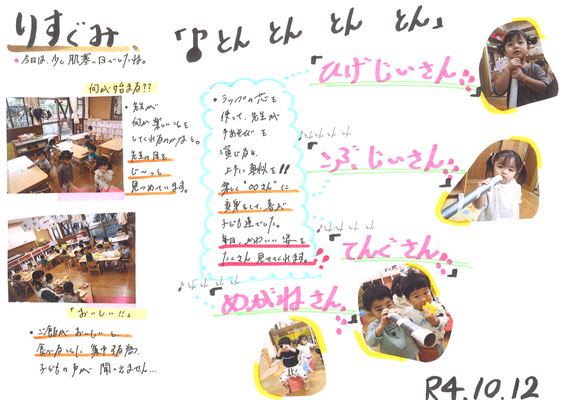 りすぐみ
「♪とん とん とん とん」
・今日は、少し肌寒い1日でしたね。
何が始まる??
・先生が
何か楽しいことを
してくれるのかなぁと。
先生の目を
じ〜っと
見つめています。
「おいしい!!」
・ご飯がおいしいと
食べるのに集中する為、
子どもの声が聞こえません…
・ラップの芯を
使って、先生が
手あそびを
演じると
上手に真似を!!
楽しく"○○さん"に
変身をして、喜ぶ
子ども達でした。
毎日、かわいい姿を
たくさん見せてくれます。
「ひげじいさん」
「こぶじいさん」
「てんぐさん」
「めがねさん」
R4.10.12